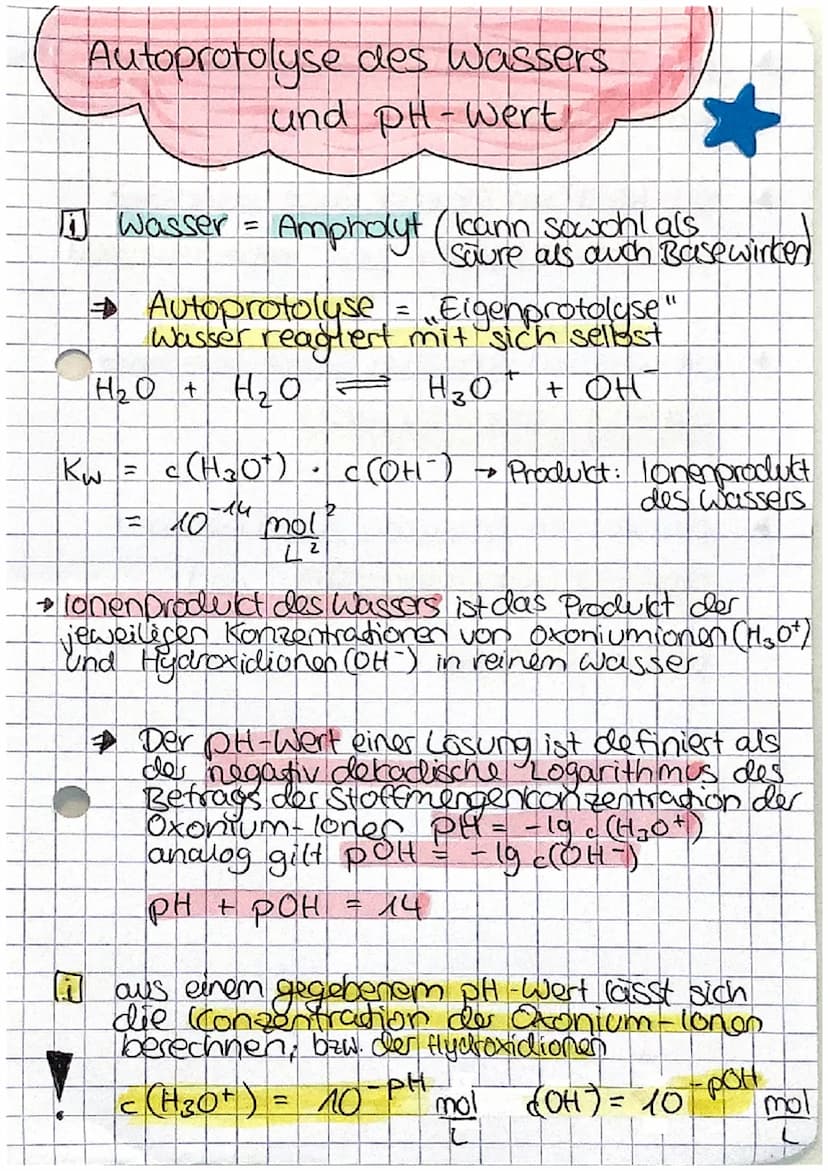 Autoprotolyse des Wassers
und pH-Wert
i Wasser = Ampholyt (kann sowohl als
säure als auch Base wirken)
→ Autoprotolyse = „Eigenprotolyse"
Wasser reagiert mit sich selbst
H₂O + H₂O ⇌ H₃O⁺ + OH⁻
Kw = c(H₃O⁺) · c(OH⁻) → Produkt: Ionenprodukt
des Wassers
= 10⁻¹⁴ mol²/L²
→ Ionenprodukt des Wassers ist das Produkt der
jeweiligen Konzentrationen von Oxoniumionen (H₃O⁺)
und Hydroxidionen (OH⁻) in reinem Wasser
→ Der pH-Wert einer Lösung ist definiert als
der negativ dekadische Logarithmus des
Betrags der Stoffmengenkonzentration der
Oxonium-Ionen pH = -lg c(H₃O⁺)
analog gilt pOH = -lg c(OH⁻)
pH + pOH = 14
i aus einem gegebenem pH-Wert lässt sich
die Konzentration der Oxonium-Ionen
berechnen, bzw. der Hydroxidionen
! c(H₃O⁺) = 10^-pH mol/L c(OH⁻) = 10^-pOH mol/L